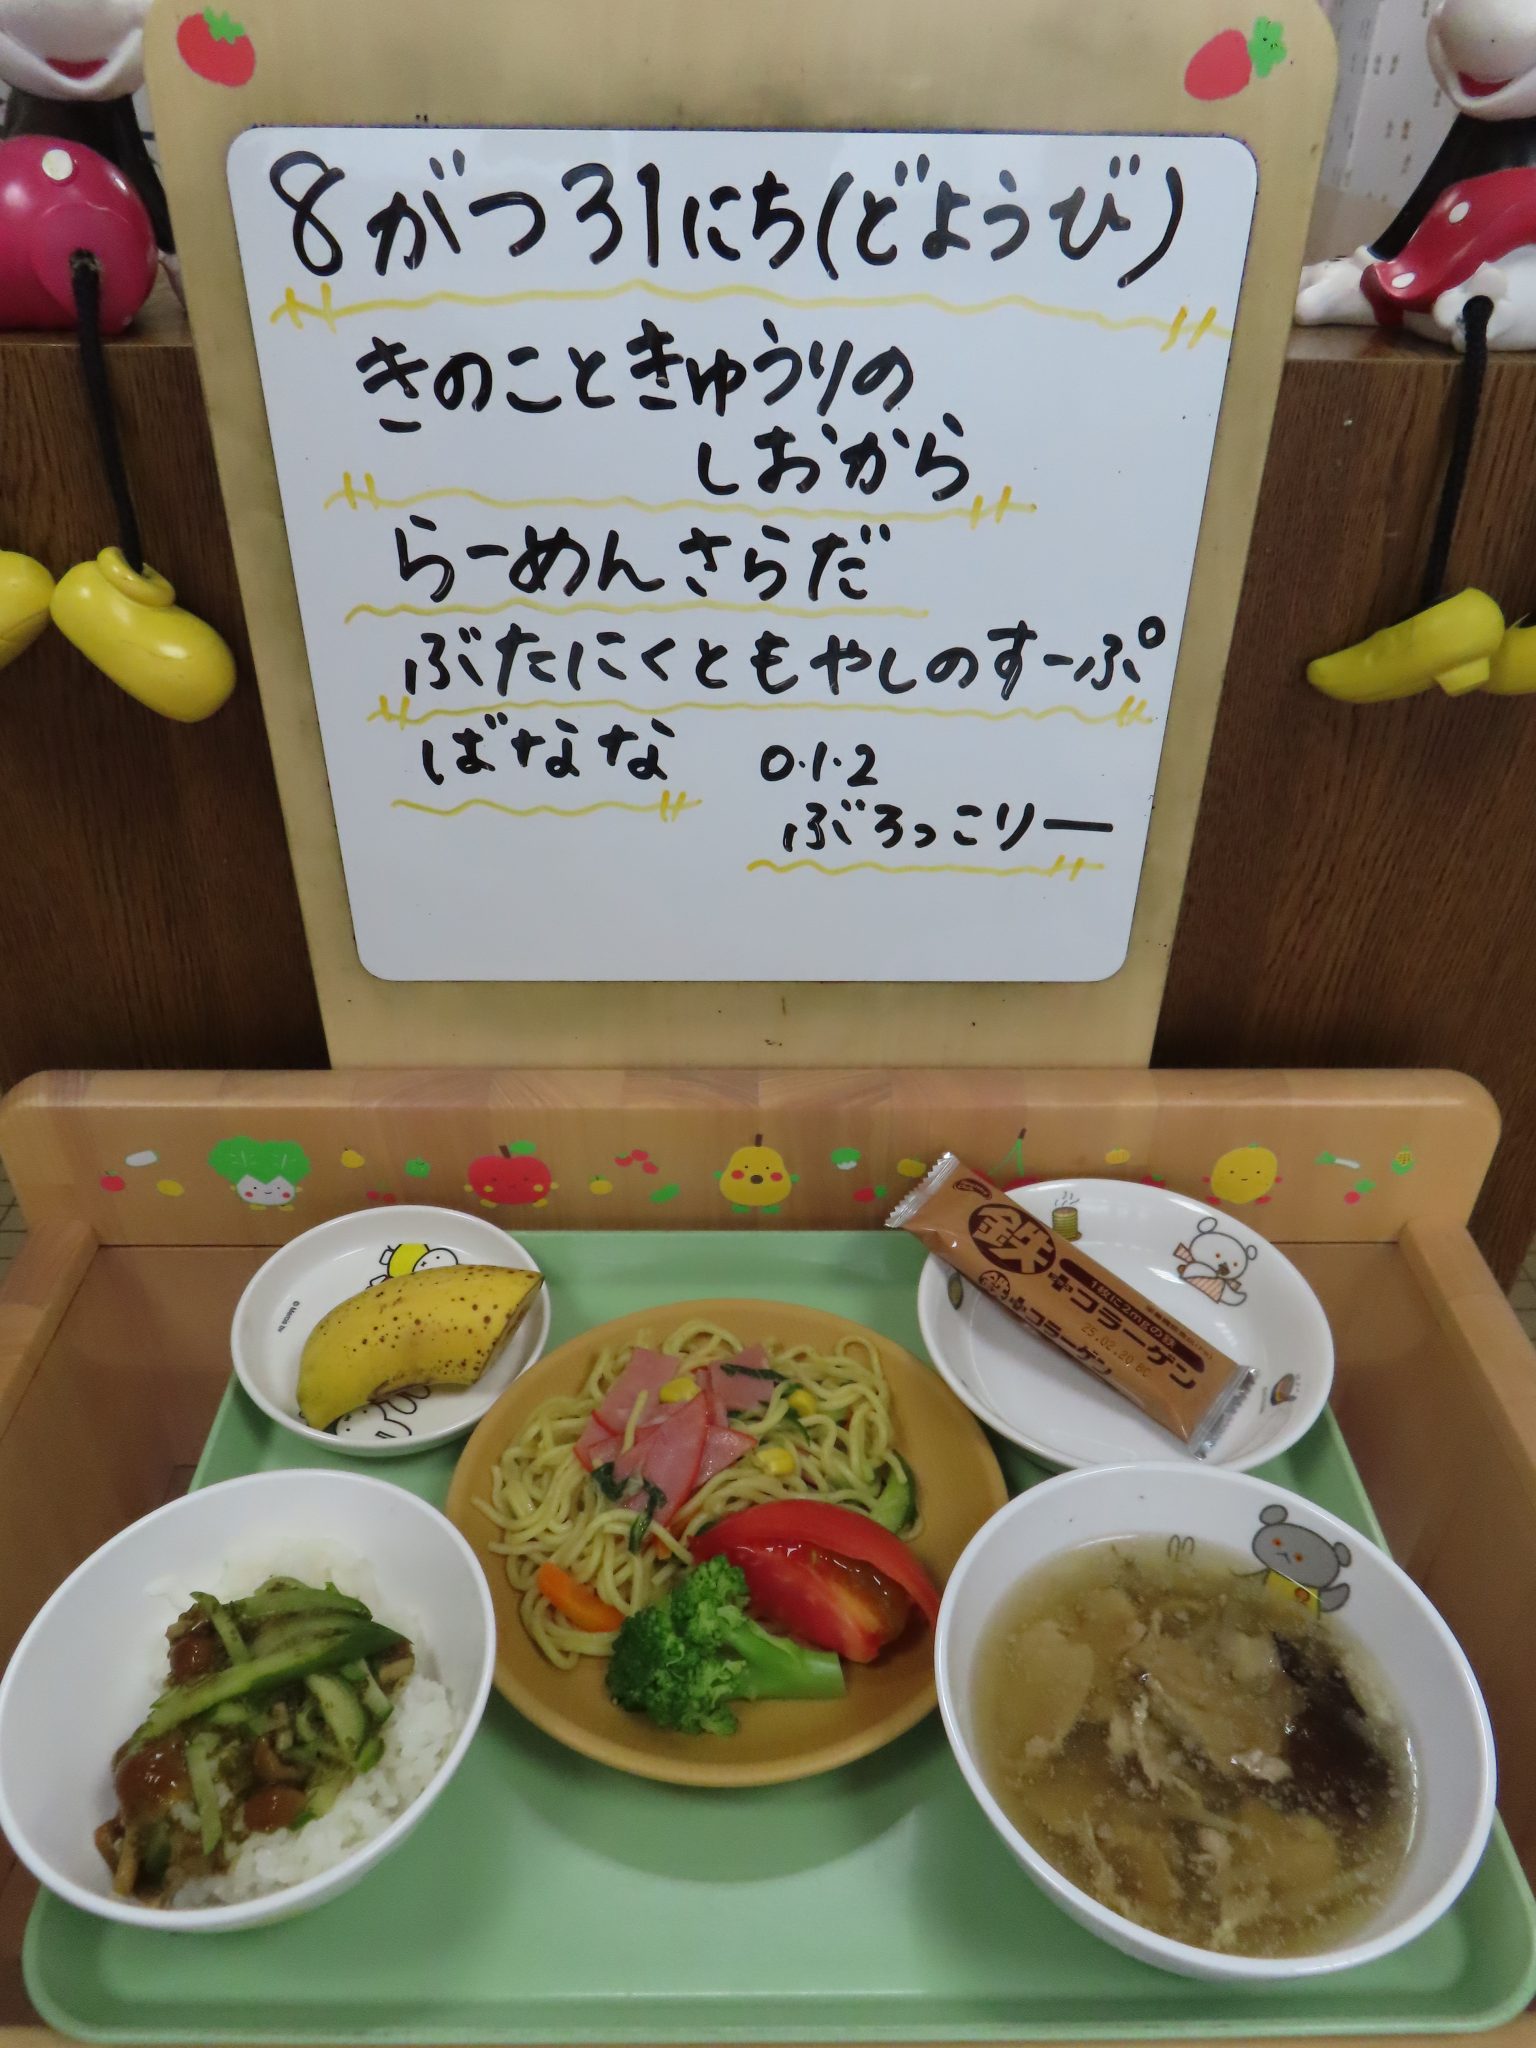 8がつ31にち(どようび)
きのこときゅうりの
しおから
らーめんさらだ
ぶたにくともやしのすーぷ
ばなな
0.1.2
ぶろっこりー
鉄
+コラーゲン
1枚に2mgの鉄
25.02.20
鉄+コラーゲン